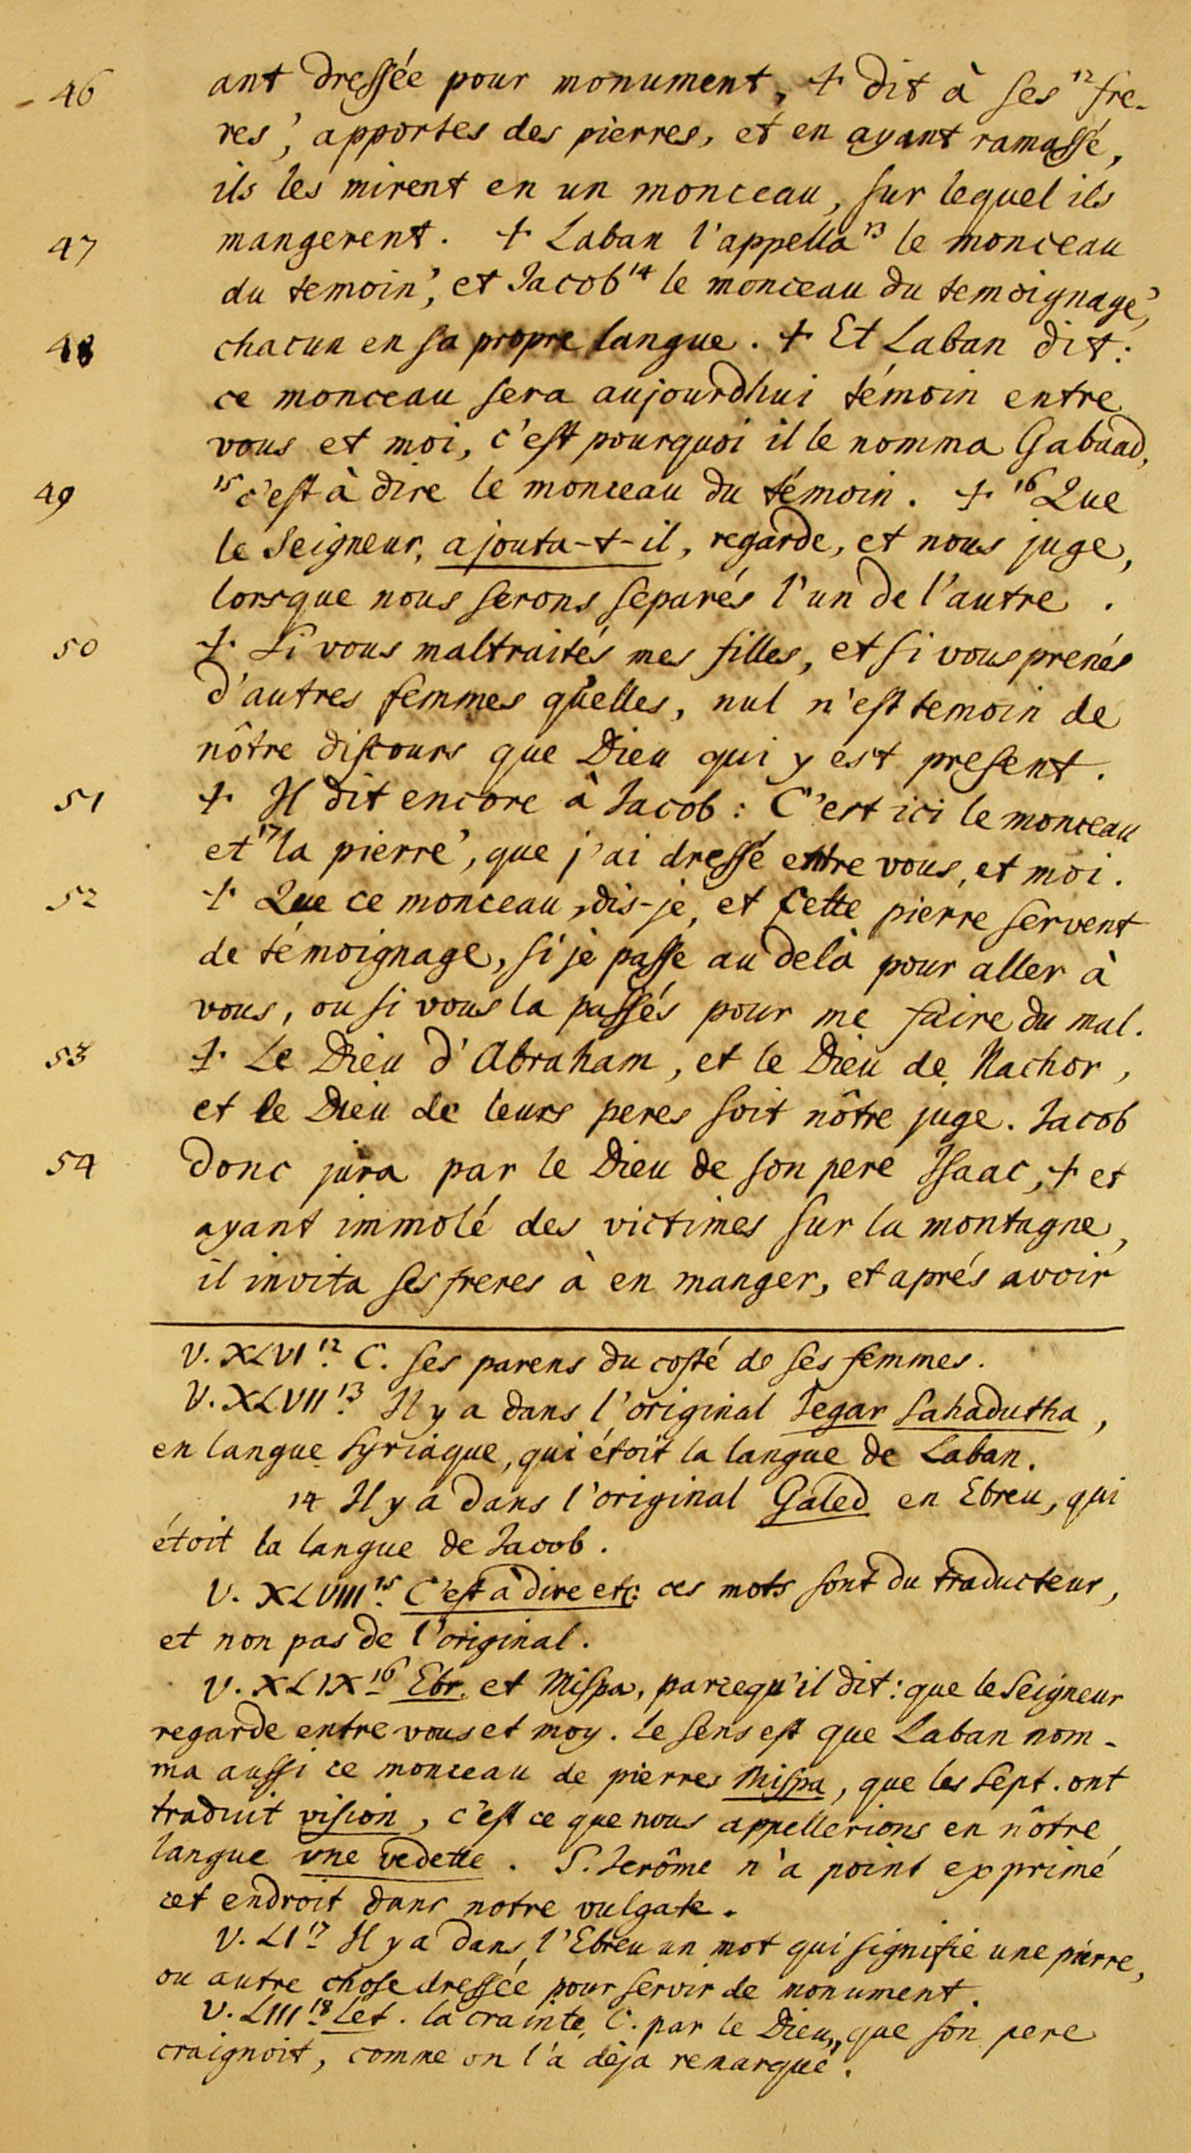 46 ant dressée pour monument, + dit à ses ¹² fre-
res', apportes des pierres, et en ayant ramassé,
ils les mirent en un monceau, sur lequel ils
47 mangerent. + Laban l'appella ¹³ le monceau
du temoin', et Jacob ¹⁴ le monceau du temoignage',
48 chacun en sa propre langue. + Et Laban dit:
ce monceau sera aujourdhui témoin entre
vous et moi, c'est pourquoi il le nomma Gabaad,
49 ¹⁵ c'est à dire le monceau du témoin. + ¹⁶ Que
le Seigneur, ajouta-t-il, regarde, et nous juge,
lorsque nous serons separés l'un de l'autre.
50 + Si vous maltraités mes filles, et si vous prenés
d'autres femmes qu'elles, nul n'est temoin de
nôtre discours que Dieu qui y est present.
51 + Il dit encore à Jacob: C'est ici le monceau
et ¹⁷ la pierre', que j'ai dressé entre vous, et moi.
52 + Que ce monceau, dis-je, et cette pierre servent
de témoignage, si je passe au delà pour aller à
vous, ou si vous la passés pour me faire du mal.
53 + Le Dieu d'Abraham, et le Dieu de Nachor,
et le Dieu de leurs peres soit nôtre juge. Jacob
54 donc jura par le Dieu de son pere Isaac, + et
ayant immolé des victimes sur la montagne,
il invita ses freres à en manger, et aprés avoir
V. XLVI ¹². C. ses parens du costé de ses femmes.
V. XLVII ¹³. Il y a dans l'original Jegar Sahadutha,
en langue Syriaque, qui étoit la langue de Laban.
14 Il y a dans l'original Galed en Ebreu, qui
étoit la langue de Jacob.
V. XLVIII ¹⁵. C'est à dire etc: ces mots sont du traducteur,
et non pas de l'original.
V. XLIX ¹⁶ Ebr. et Mispa, parcequ'il dit: que le Seigneur
regarde entre vous et moy. Le sens est que Laban nom-
ma aussi ce monceau de pierres Mispa, que les Sept. ont
traduit vision, c'est ce que nous appellerions en nôtre
langue une vedette. S. Jerôme n'a point exprimé
cet endroit dans notre vulgate.
V. LI ¹⁷ Il y a dans l'Ebreu un mot qui signifie une pierre,
ou autre chose dressée pour servir de monument.
V. LIII ¹⁸ Let. la crainte, C. par le Dieu, que son pere
craignoit, comme on l'a déja remarqué.